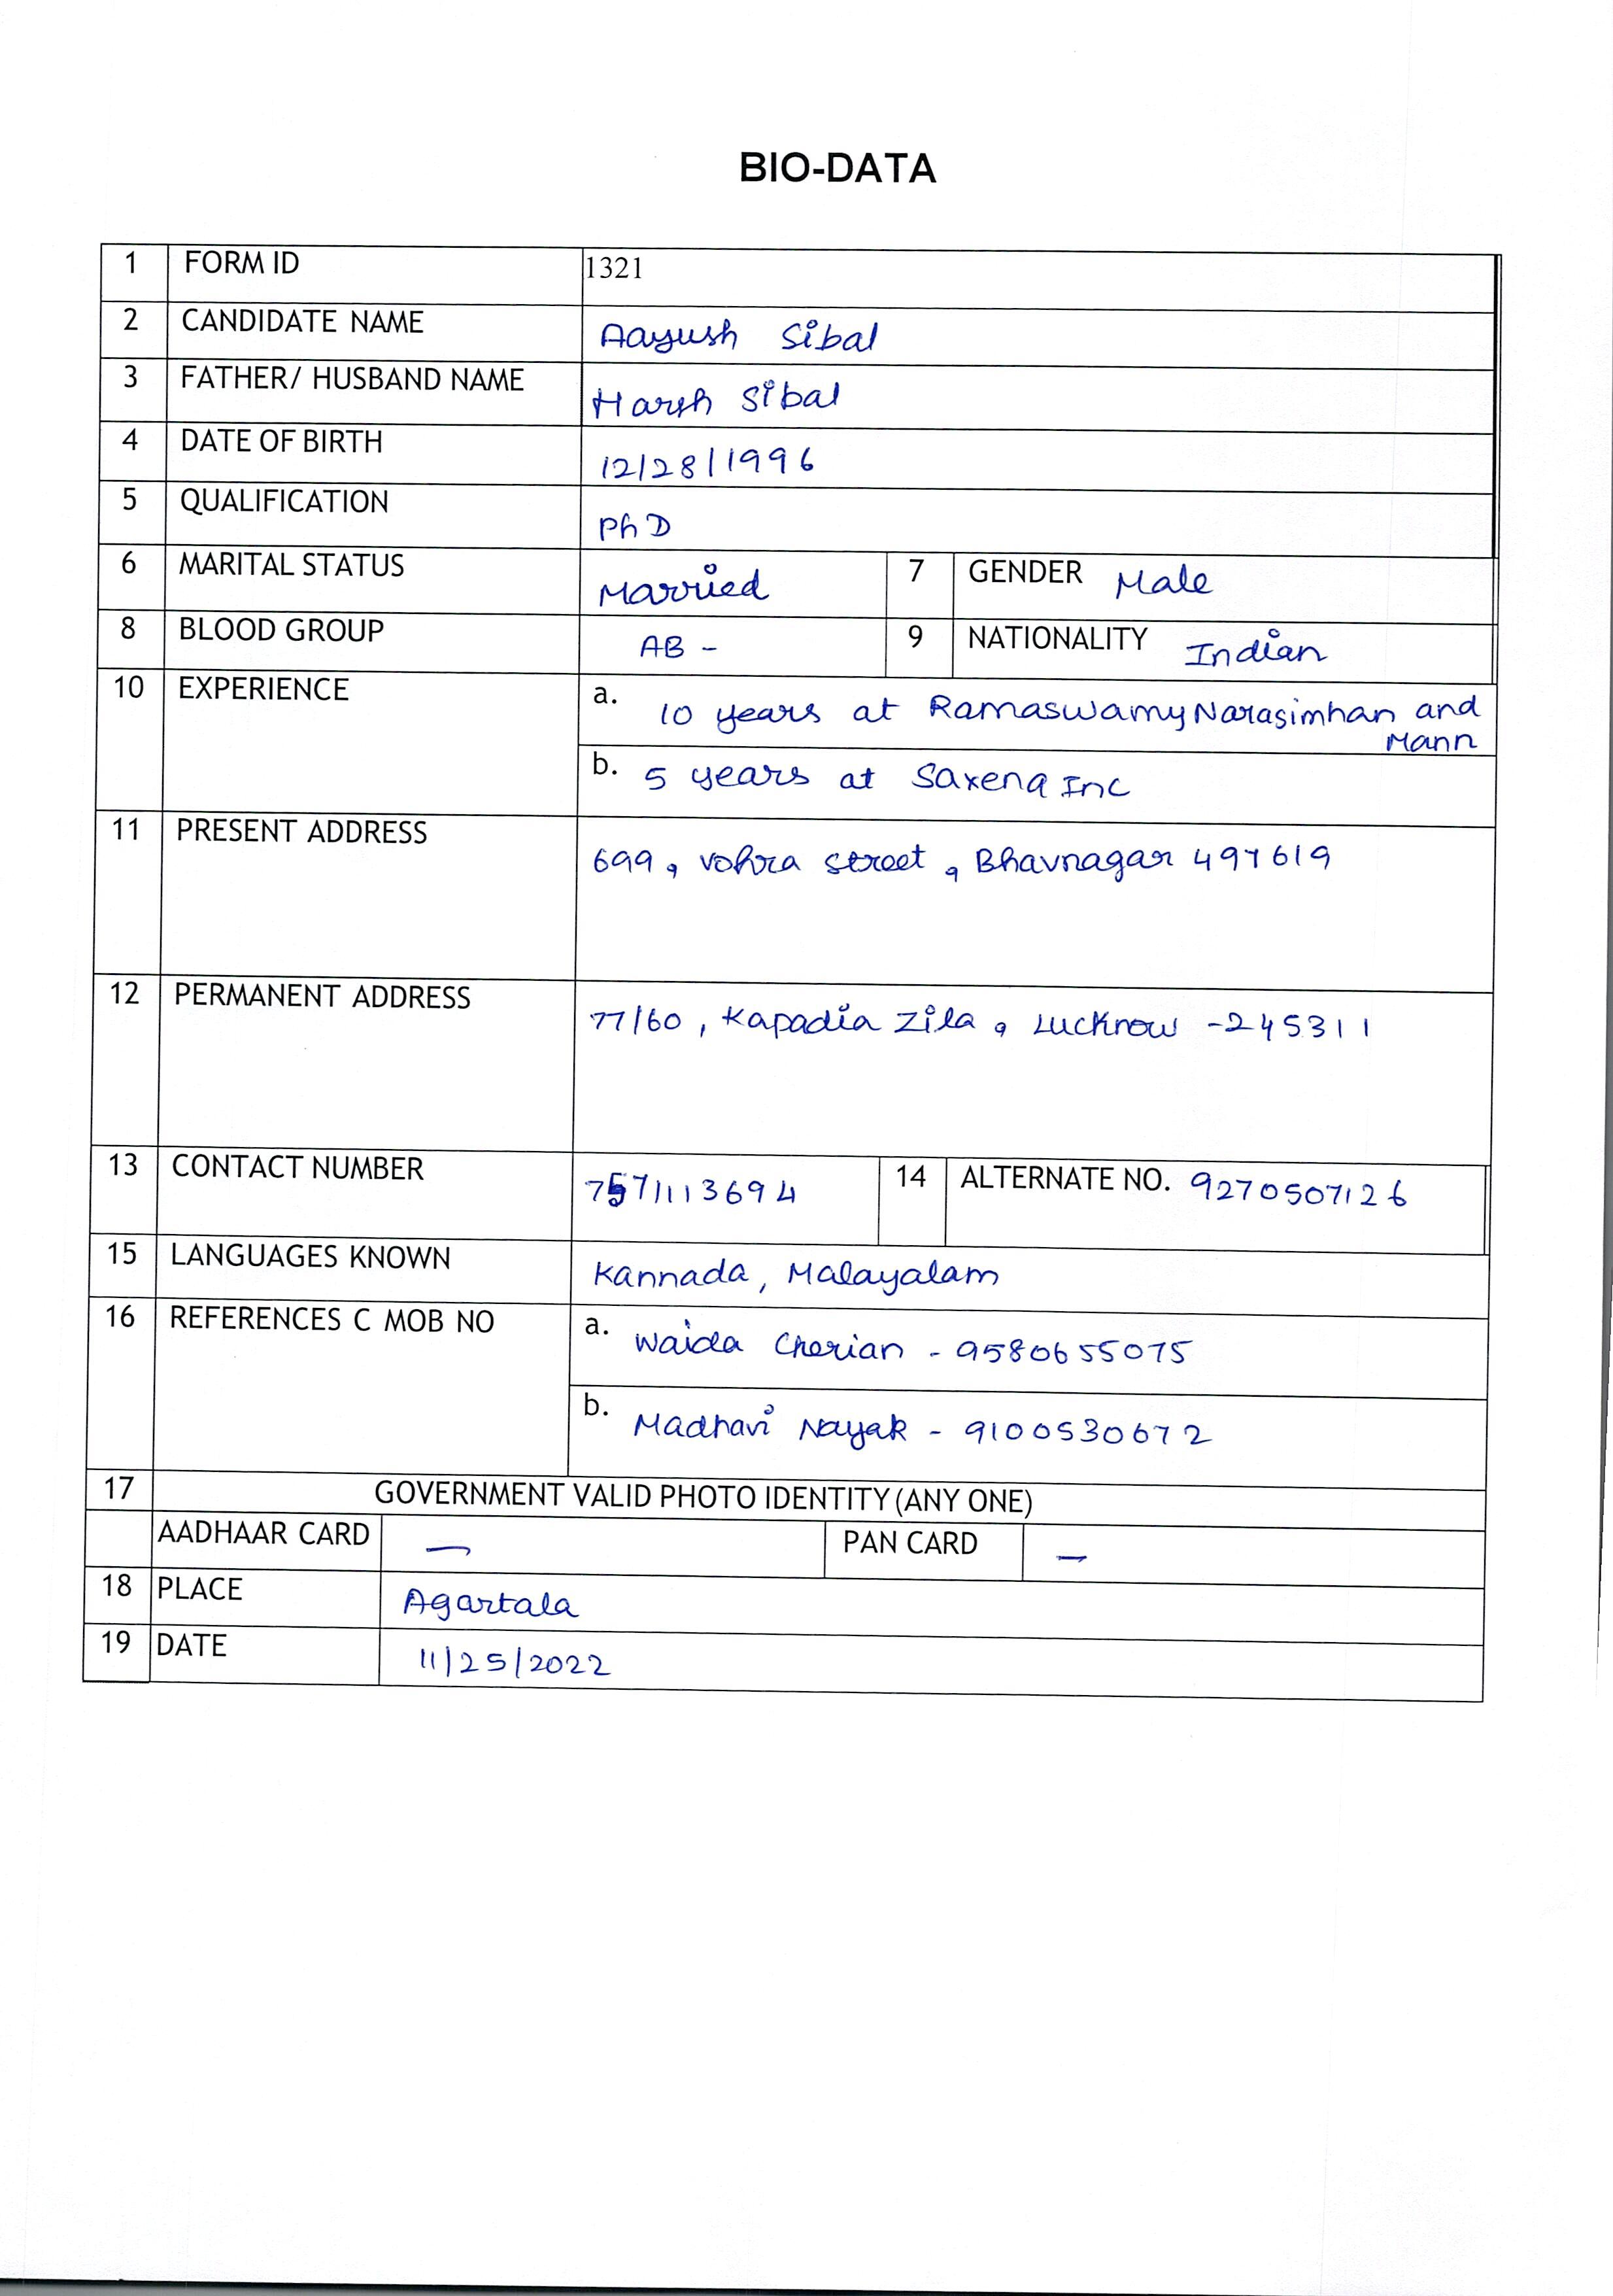 BIO-DATA
1 FORM ID 1321
2 CANDIDATE NAME Aayush Sibal
3 FATHER/ HUSBAND NAME Harsh Sibal
4 DATE OF BIRTH 12/28/1996
5 QUALIFICATION PhD
6 MARITAL STATUS Married 7 GENDER Male
8 BLOOD GROUP AB - 9 NATIONALITY Indian
10 EXPERIENCE a. 10 years at Ramaswamy Narasimhan and
Mann
b. 5 years at Saxena Inc
11 PRESENT ADDRESS 699, Vohra Street, Bhavnagar 497619
12 PERMANENT ADDRESS 77/60, Kapadia Zila, Lucknow -245311
13 CONTACT NUMBER 7571113694 14 ALTERNATE NO. 9270507126
15 LANGUAGES KNOWN Kannada, Malayalam
16 REFERENCES C MOB NO a. Waida Cherian - 9580655075
b. Madhavi Nayak - 9100530672
17 GOVERNMENT VALID PHOTO IDENTITY (ANY ONE)
AADHAAR CARD — PAN CARD —
18 PLACE Agartala
19 DATE 11/25/2022